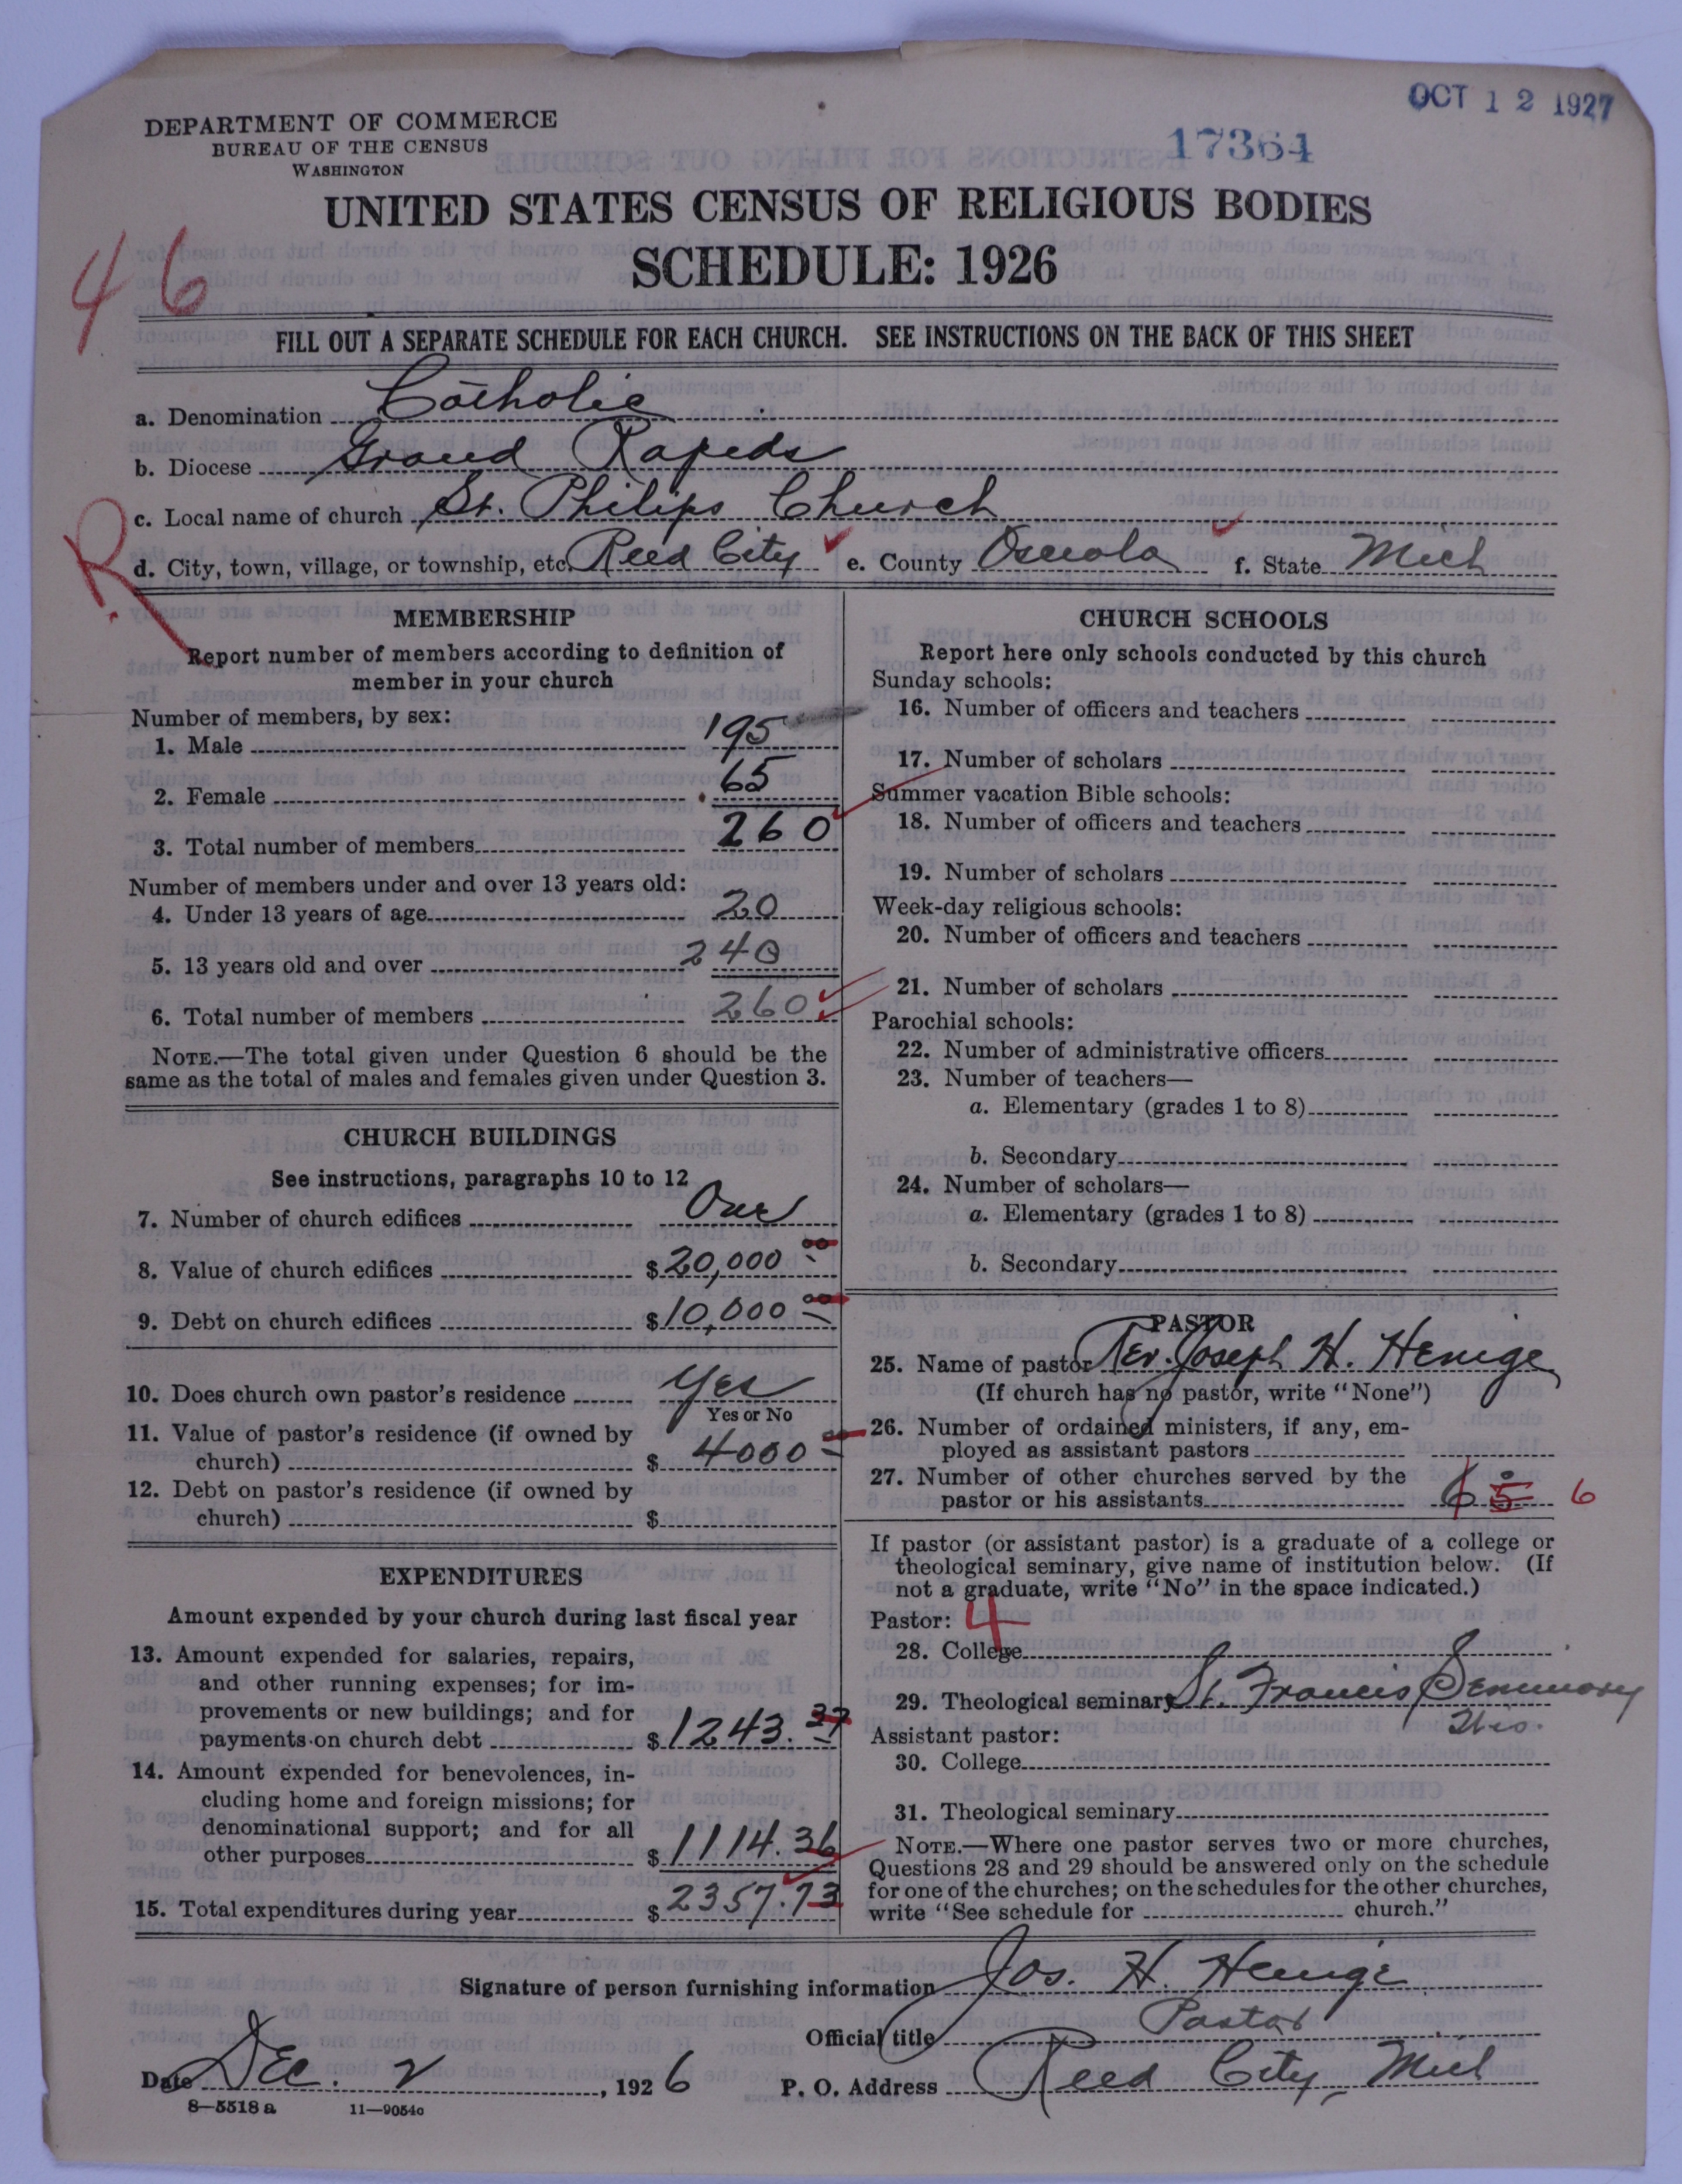 OCT 12 1927
DEPARTMENT OF COMMERCE
BUREAU OF THE CENSUS
WASHINGTON
17364
UNITED STATES CENSUS OF RELIGIOUS BODIES
SCHEDULE: 1926
46
FILL OUT A SEPARATE SCHEDULE FOR EACH CHURCH. SEE INSTRUCTIONS ON THE BACK OF THIS SHEET
a. Denomination Catholic
b. Diocese Grand Rapids
c. Local name of church St. Philips Church
R.
d. City, town, village, or township, etc. Reed City e. County Osceola f. State Mich
MEMBERSHIP
Report number of members according to definition of
member in your church
Number of members, by sex:
1. Male 195
2. Female 65
3. Total number of members 260
Number of members under and over 13 years old:
4. Under 13 years of age 20
5. 13 years old and over 240
6. Total number of members 260
NOTE.—The total given under Question 6 should be the
same as the total of males and females given under Question 3.
CHURCH BUILDINGS
See instructions, paragraphs 10 to 12
7. Number of church edifices One
8. Value of church edifices $20,000 00
9. Debt on church edifices $10,000 00
10. Does church own pastor's residence Yes
Yes or No
11. Value of pastor's residence (if owned by
church) $ 4000
12. Debt on pastor's residence (if owned by
church) $
EXPENDITURES
Amount expended by your church during last fiscal year
13. Amount expended for salaries, repairs,
and other running expenses; for im-
provements or new buildings; and for
payments on church debt $1243.37
14. Amount expended for benevolences, in-
cluding home and foreign missions; for
denominational support; and for all
other purposes $1114.36
15. Total expenditures during year $2357.73
CHURCH SCHOOLS
Report here only schools conducted by this church
Sunday schools:
16. Number of officers and teachers
17. Number of scholars
Summer vacation Bible schools:
18. Number of officers and teachers
19. Number of scholars
Week-day religious schools:
20. Number of officers and teachers
21. Number of scholars
Parochial schools:
22. Number of administrative officers
23. Number of teachers—
a. Elementary (grades 1 to 8)
b. Secondary
24. Number of scholars—
a. Elementary (grades 1 to 8)
b. Secondary
PASTOR
25. Name of pastor Rev. Joseph H. Henige
(If church has no pastor, write "None")
26. Number of ordained ministers, if any, em-
ployed as assistant pastors
27. Number of other churches served by the
pastor or his assistants 6 5 6
If pastor (or assistant pastor) is a graduate of a college or
theological seminary, give name of institution below. (If
not a graduate, write "No" in the space indicated.)
Pastor: 4
28. College
29. Theological seminary St. Francis Seminary
Wis.
Assistant pastor:
30. College
31. Theological seminary
NOTE.—Where one pastor serves two or more churches,
Questions 28 and 29 should be answered only on the schedule
for one of the churches; on the schedules for the other churches,
write "See schedule for church."
Signature of person furnishing information Jos. H. Henige
Official title Pastor
Date Dec. 2, 1926 P. O. Address Reed City, Mich
8—5518 a 11—9054c